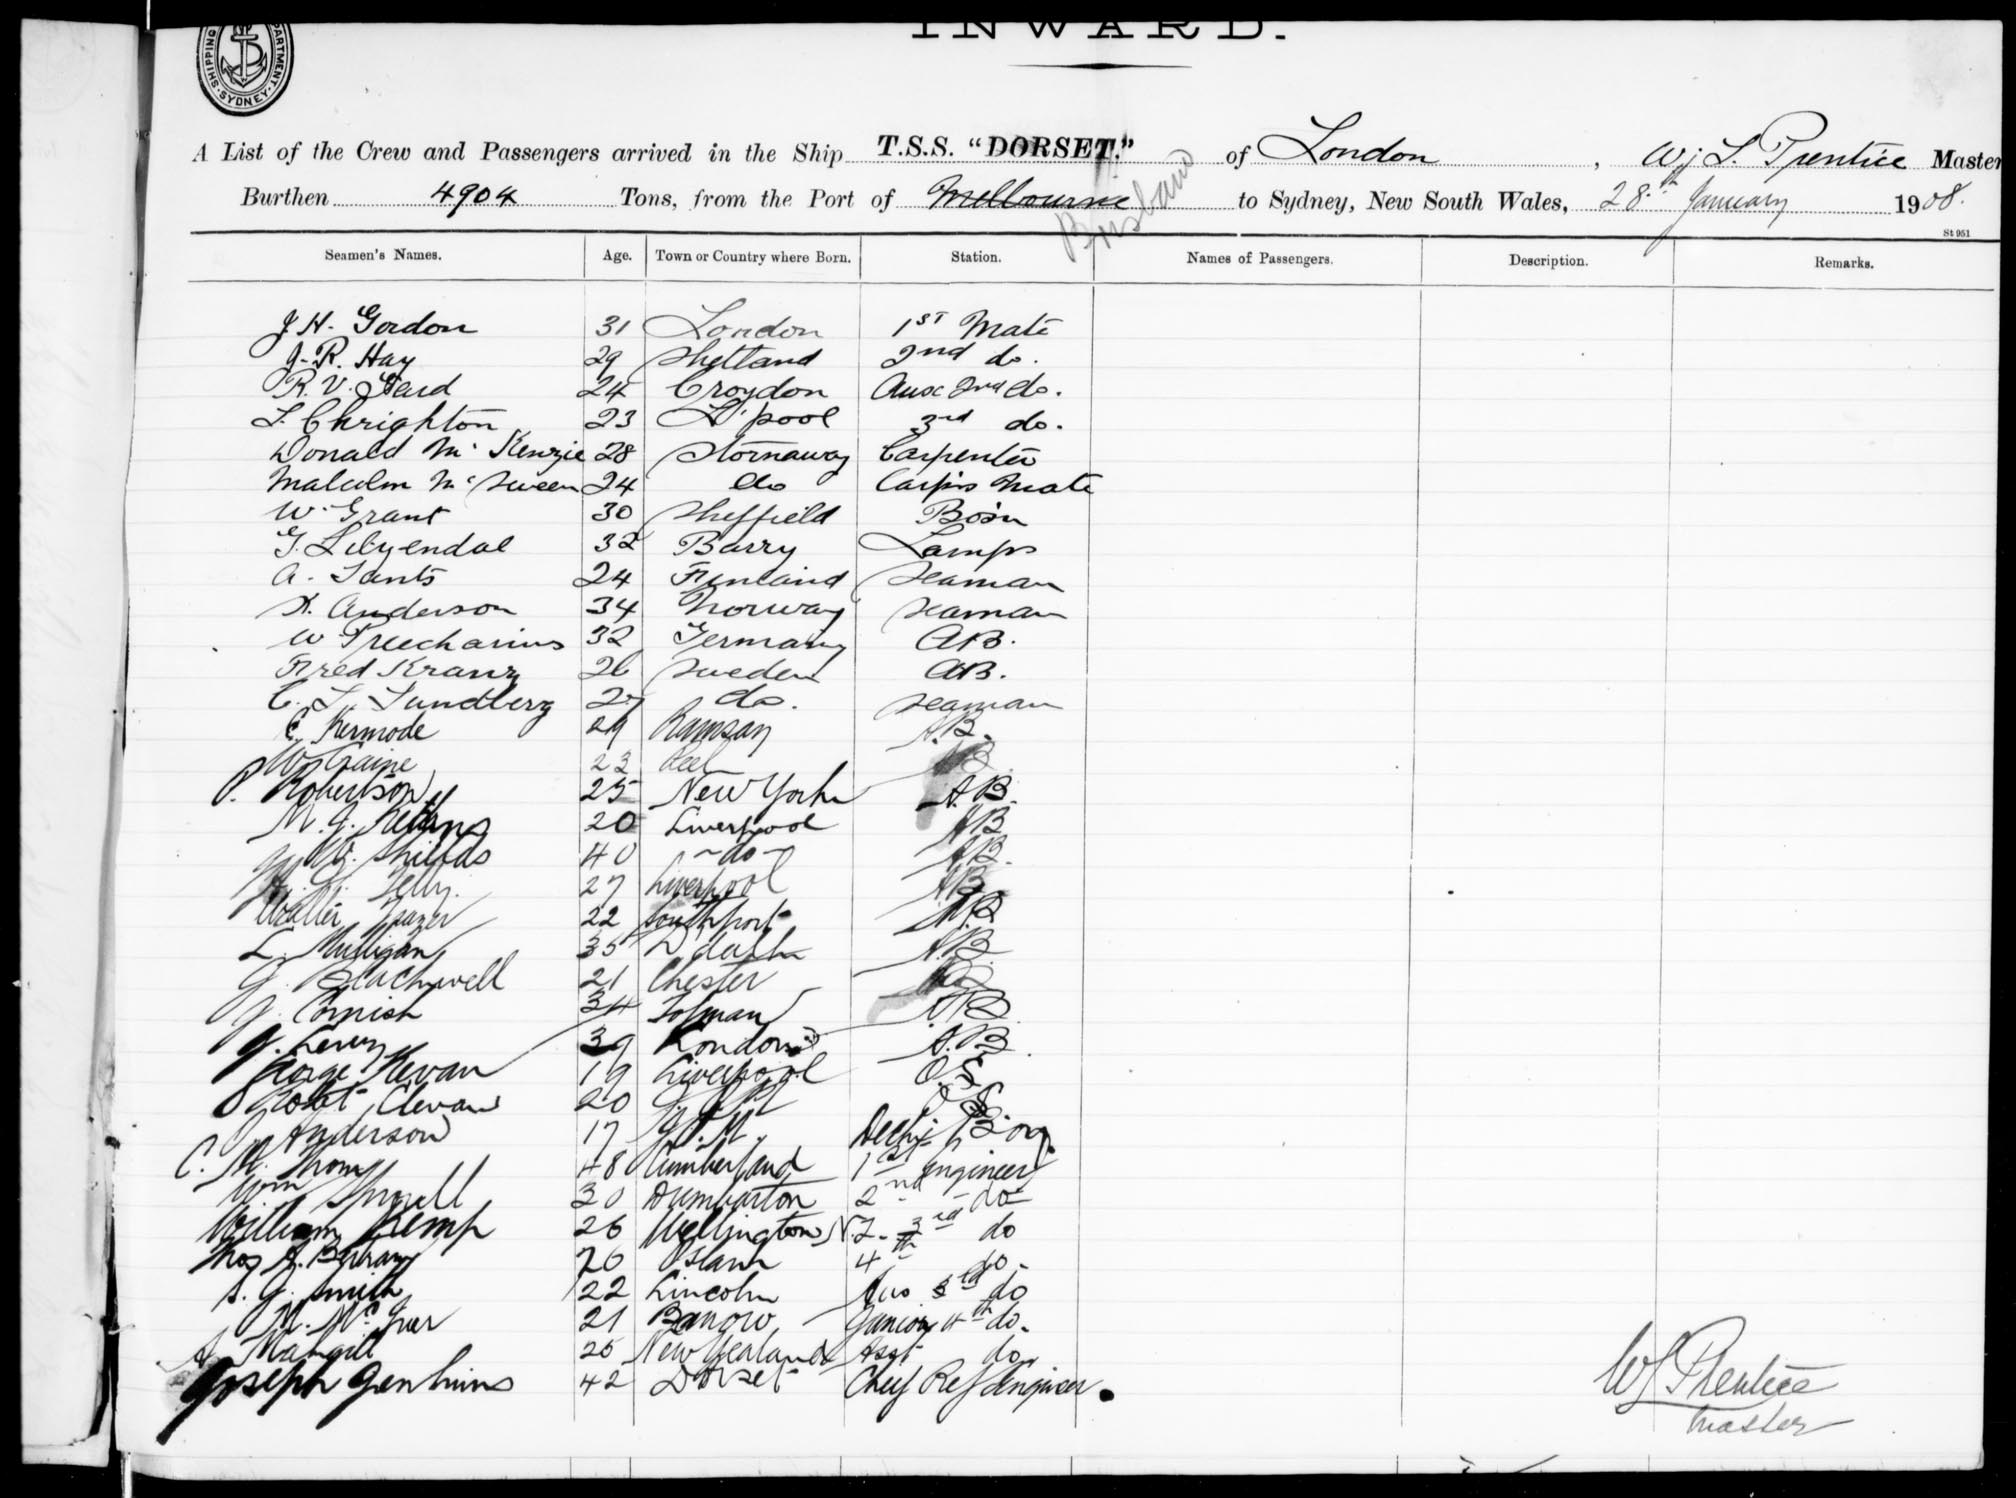 INWARD.
SHIPPING DEPARTMENT. SYDNEY.
A List of the Crew and Passengers arrived in the Ship T.S.S. "DORSET." of London, W. L. Prentice Master
Burthen 4904 Tons, from the Port of Melbourne Brisbane to Sydney, New South Wales, 28th January 1908.
St 951
Seamen's Names. Age. Town or Country where Born. Station. Names of Passengers. Description. Remarks.
J. H. Gordon 31 London 1st Mate
J. R. Hay 29 Shetland 2nd do.
R. V. 24 Croydon Aux 2nd do.
L. Chrighton 23 L'pool 3rd do.
Donald Mc Kenzie 28 Stornaway Carpenter
Malcolm Mc Sween 24 do Carp's Mate
W. Grant 30 Sheffield Bosn
G. Lilyendal 32 Barry Lamps
A. 24 Finland Seaman
A. Anderson 34 Norway Seaman
W 32 Germany AB.
Fred Kranz 26 Sweden AB.
C. L. Lundberg 27 do. Seaman
C. Kermode 29 Ramsay A.B.
W. Caine 23 Peel AB.
P. Robertson 25 New York A.B.
M. J. Kearns 20 Liverpool AB
W. Shields 40 - do - AB.
27 Liverpool AB
Walter 22 Southport AB
L. Mulligan 35 A.B.
G. Blackwell 21 Chester AB
J. Cornish 34 A.B.
J. Levey 39 London A.B.
George Kevan 19 Liverpool O.S.
Robt 20 O.S.
J. Anderson 17 Deck Boy.
C. M. Thom 48 Cumberland 1st Engineer
Wm 30 Dumbarton 2nd do
William Kemp 26 Wellington N.Z. 3rd do
Thos 26 4th do.
S. G. Smith 22 Lincoln 3rd do
M. 21 Barrow Junior 4th do.
A. 25 New Zealand Asst do.
Joseph Jenkins 42 Dorset Chief Ref Engineer.
W L Prentice
Master